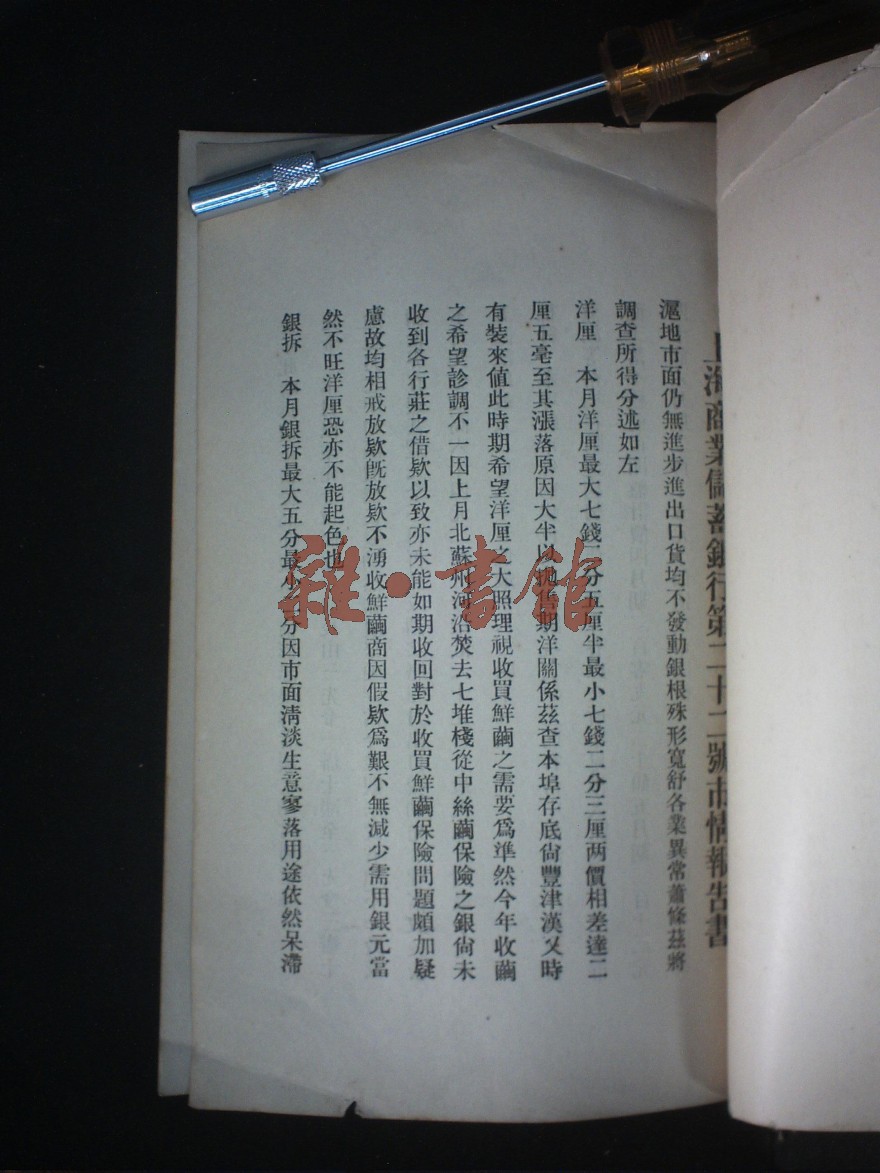 上海商業儲蓄銀行第二十二號市情報告書
滬地市面仍無進步進出口貨均不發動銀根殊形寬舒各業異常蕭條茲將
調查所得分述如左
洋厘 本月洋厘最大七錢二分五厘半最小七錢二分三厘两價相差達二
厘五毫至其漲落原因大半以抛售期洋關係茲查本埠存底尙豐津漢又時
有裝來値此時期希望洋厘之大照理視收買鮮繭之需要爲準然今年收繭
之希望診調不一因上月北蘇州河沿焚去七堆棧從中絲繭保險之銀尙未
收到各行莊之借欵以致亦未能如期收回對於收買鮮繭保險問題頗加疑
慮故均相戒放欵旣放欵不湧收鮮繭商因假欵爲艱不無減少需用銀元當
然不旺洋厘恐亦不能起色也
銀拆 本月銀拆最大五分最小 分因市面淸淡生意寥落用途依然呆滯
雜·書館